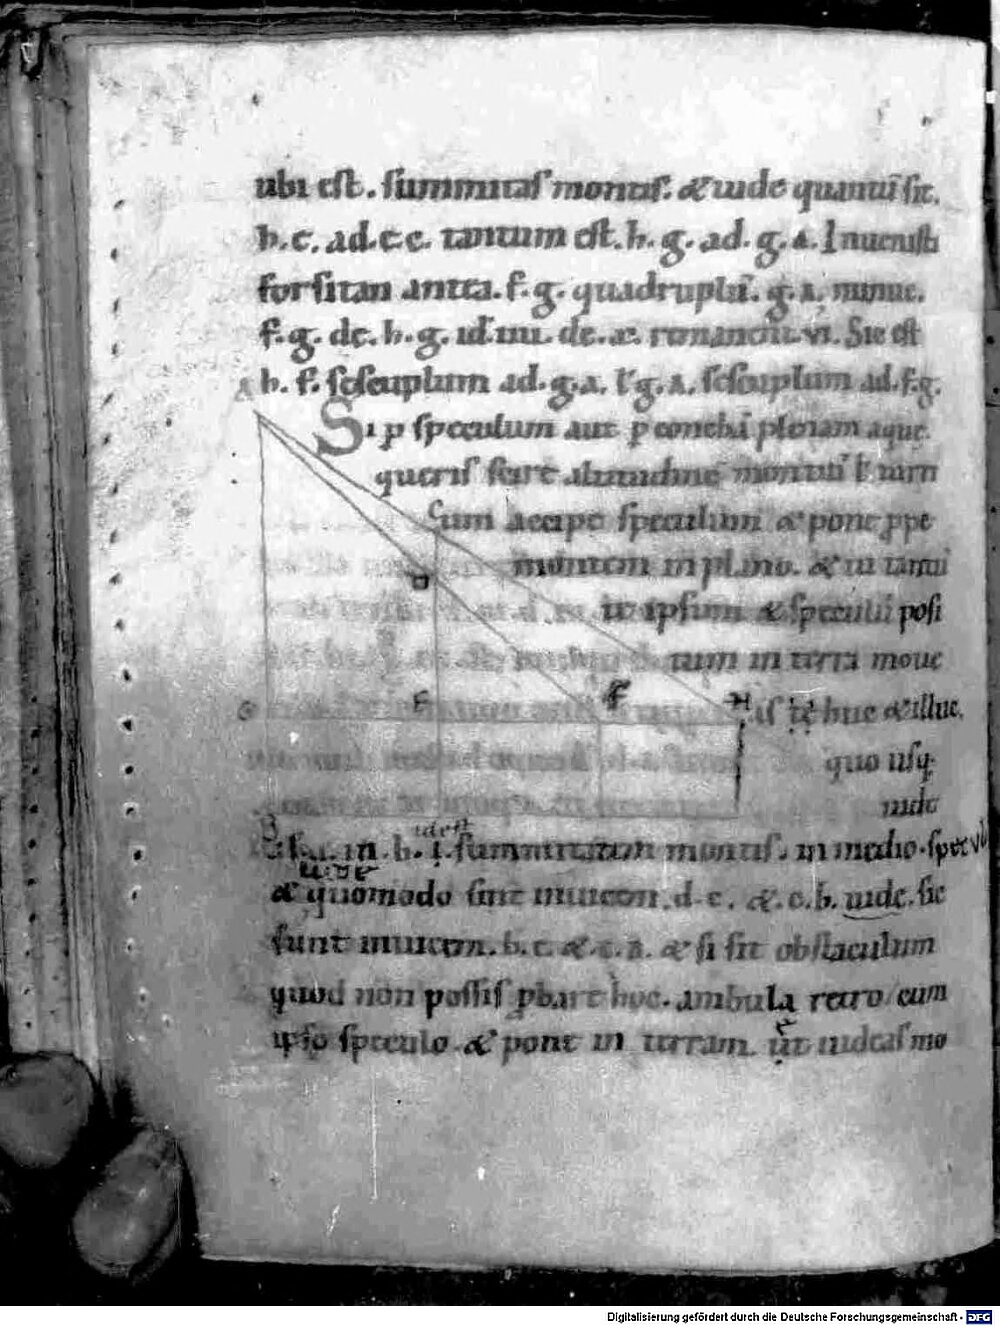 ubi est. summitas montis. & uide quantū sit.
h. c. ad. c e. tantum est. h. g. ad. g. a. Inuenisti
forsitan antea. f. g. quadruplū. g. a. minue.
f. g. de. h. g. id. iiii. de. x. remanent. vi. Sic est
h. f. sescuplum ad. g. a. ł g. a. sescuplum ad. f. g.
A
Si p speculum aut p concha plenam aque.
queris scire altitudinē montiū ł turri
um accipe speculum & pone ppe
montem in plano. & in tantū
te ipsum & speculū posi
tum in terra moue
G E F H is huc & illuc.
quo usq;
uide
B
in. b. i. summitatem montis. in medio. specul
idest
uide
& quomodo sint inuicem. d. e. & e. b. uide. sic
sunt inuicem. b. c. & c. a. & si sit obstaculum
quod non possis pbare hoc. ambula retro cum
ipso speculo. & pone in terram. ut uideas mo
C
D
Digitalisierung gefördert durch die Deutsche Forschungsgemeinschaft - DFG